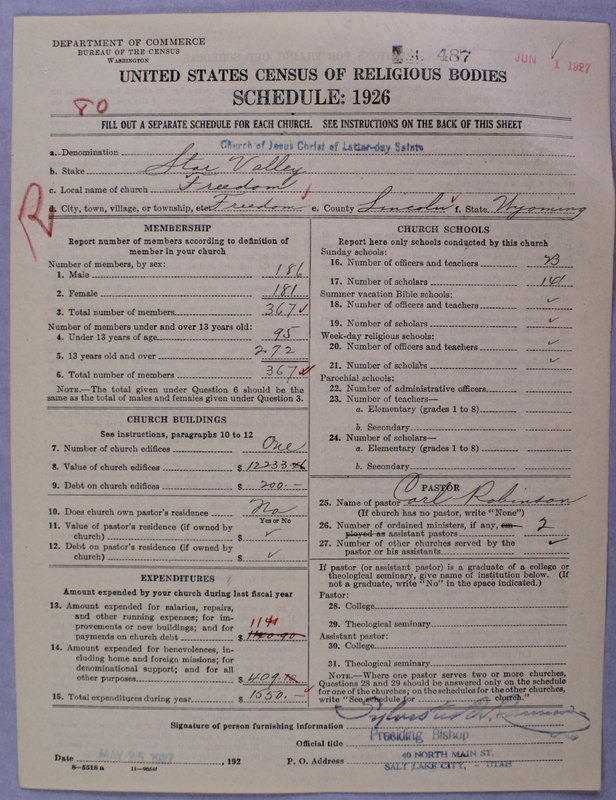 DEPARTMENT OF COMMERCE
BUREAU OF THE CENSUS
WASHINGTON
487
JUN 1 1927
UNITED STATES CENSUS OF RELIGIOUS BODIES
SCHEDULE: 1926
80
FILL OUT A SEPARATE SCHEDULE FOR EACH CHURCH. SEE INSTRUCTIONS ON THE BACK OF THIS SHEET
a. Denomination Church of Jesus Christ of Latter-day Saints
b. Stake Star Valley
c. Local name of church Freedom
d. City, town, village, or township, etc. Freedom e. County Lincoln f. State Wyoming
R
MEMBERSHIP
Report number of members according to definition of
member in your church
Number of members, by sex:
1. Male 186
2. Female 181
3. Total number of members 367 ✓
Number of members under and over 13 years old:
4. Under 13 years of age 95
5. 13 years old and over 272
6. Total number of members 367 ✓
NOTE.—The total given under Question 6 should be
same as the total of males and females given under Question 3.
CHURCH BUILDINGS
See instructions, paragraphs 10 to 12
7. Number of church edifices One
8. Value of church edifices $ 12233.
9. Debt on church edifices $ 200.—
10. Does church own pastor's residence No
Yes or No
11. Value of pastor's residence (if owned by
church) $ ✓
12. Debt on pastor's residence (if owned by
church) $ ✓
EXPENDITURES
Amount expended by your church during last fiscal year
13. Amount expended for salaries, repairs,
and other running expenses; for im-
provements or new buildings; and for
payments on church debt $ 1141
14. Amount expended for benevolences, in-
cluding home and foreign missions; for
denominational support; and for all
other purposes $ 409.
15. Total expenditures during year $ 1550.— ✓
CHURCH SCHOOLS
Report here only schools conducted by this church
Sunday schools:
16. Number of officers and teachers 23
17. Number of scholars 141
Summer vacation Bible schools:
18. Number of officers and teachers ✓
19. Number of scholars ✓
Week-day religious schools:
20. Number of officers and teachers ✓
21. Number of scholars ✓
Parochial schools:
22. Number of administrative officers
23. Number of teachers—
a. Elementary (grades 1 to 8)
b. Secondary
24. Number of scholars—
a. Elementary (grades 1 to 8)
b. Secondary
PASTOR
25. Name of pastor Carl Robinson
(If church has no pastor, write "None")
26. Number of ordained ministers, if any, em-
ployed as assistant pastors 2
27. Number of other churches served by the
pastor or his assistants ✓
If pastor (or assistant pastor) is a graduate of a college or
theological seminary, give name of institution below. (If
not a graduate, write "No" in the space indicated.)
Pastor:
28. College
29. Theological seminary
Assistant pastor:
30. College
31. Theological seminary
NOTE.—Where one pastor serves two or more churches,
Questions 28 and 29 should be answered only on the schedule
for one of the churches; on the schedules for the other churches,
write "See schedule for church."
Signature of person furnishing information
Official title Presiding Bishop
Date MAY 25 1927, 192 P. O. Address 40 NORTH MAIN ST.
SALT LAKE CITY, - UTAH
8—5518 a